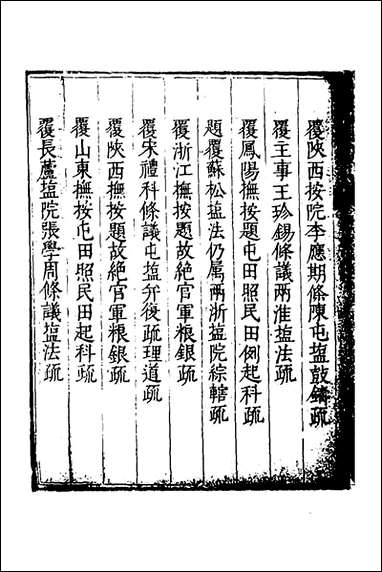 覆陝西按院李應期條陳屯盐鼓鑄疏
覆主事王珍錫條議兩淮盐法疏
覆鳳陽撫按題屯田照民田例起科疏
題覆蘇松盐法仍属兩浙盐院綜轄疏
覆浙江撫按題故絶官軍粮銀疏
覆宋禮科條議屯盐并後疏理道疏
覆陝西撫按題故絶官軍粮銀疏
覆山東撫按屯田照民田起科疏
覆長蘆盐院張學周條議盐法疏